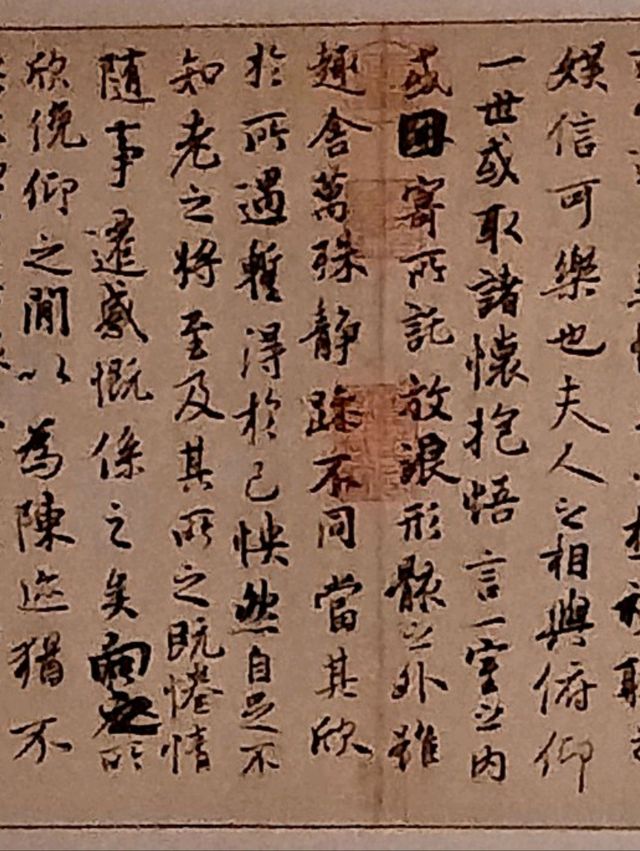 娛信可樂也夫人之相與俯仰
一世或取諸懷抱悟言一室之內
或因寄所託放浪形骸之外雖
趣舍萬殊靜躁不同當其欣
於所遇暫得於己怏然自足不
知老之將至及其所之既惓情
隨事遷感慨係之矣向之所
欣俛仰之閒以為陳迹猶不